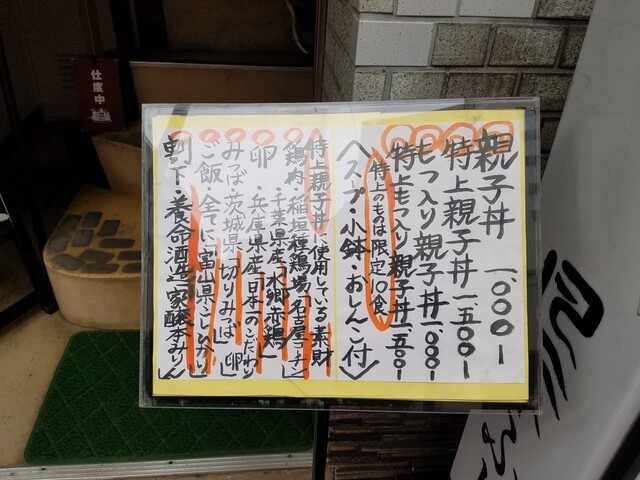 親子丼 一、〇〇〇ー
特上親子丼 一、五〇〇ー
もつ入り親子丼 一、〇〇〇ー
特上もつ入り親子丼 一、五〇〇ー
特上のものは限定10食
〈スープ・小鉢・おしんこ付〉
特上親子丼に使用している素財
鶏肉・稲垣種鶏場「名古屋コーチン」
・千葉県産「水郷赤鶏」
卵・兵庫県産「日本一のこだわり卵」
みつば・茨城県「切りみつば」
ご飯・全て「富山県こしひかり」
割下・養命酒造「家醸本みりん」
仕度中